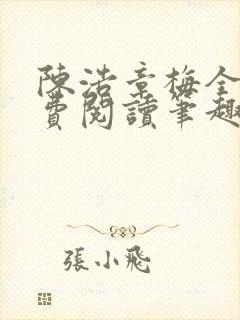 陳浩章梅全
費閱讀筆趣
張小飛